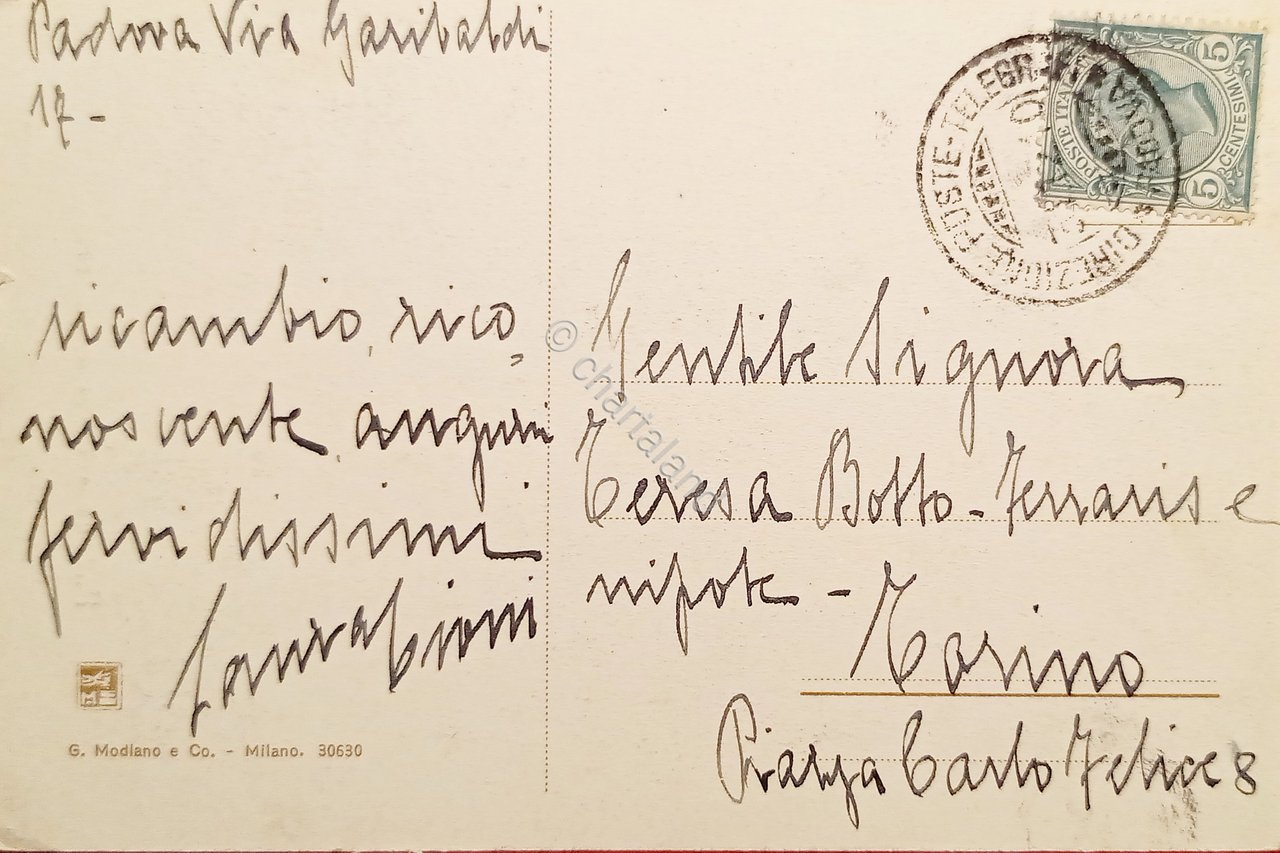 Padova Via Garibaldi
17-
ricambio, rico,
noscente, auguri
fervidissimi
Laura Cioni
G. Modiano e Co. - Milano. 30630
5 CENTESIMI 5
POSTE ITALIANE
DIREZIONE POSTE-TELEGR. PADOVA
Gentile Signora
Teresa Botto-Ferraris e
nipote -
Torino
Piazza Carlo Felice 8
© chartaland